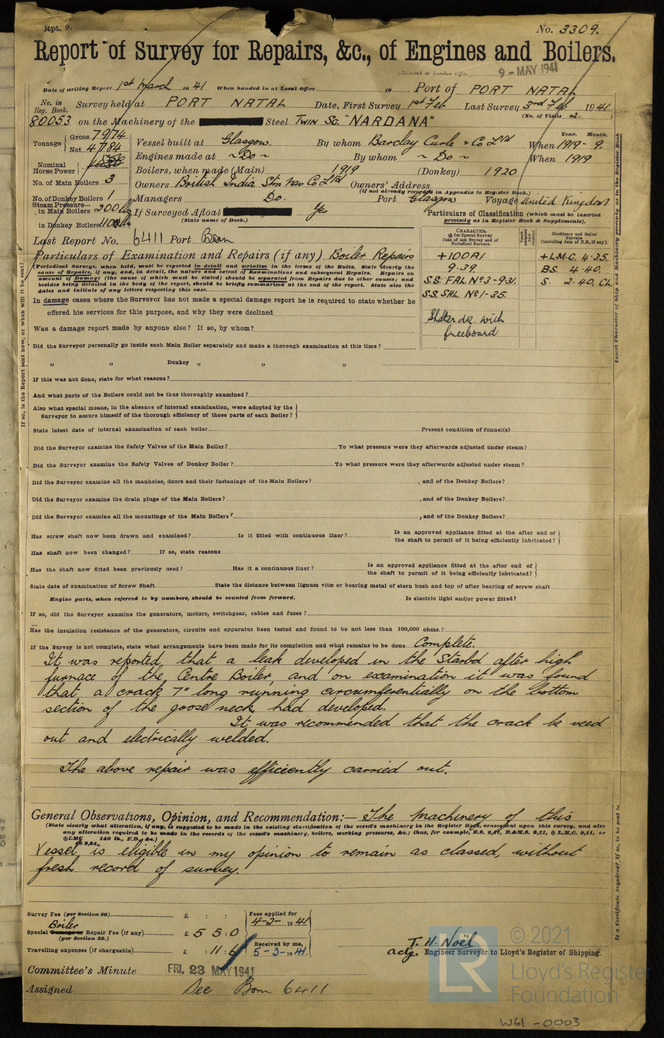 Rpt. 9.
No. 3309.
Report of Survey for Repairs, &c., of Engines and Boilers.
9 - MAY 1941
Date of writing Report 1st March 1941 When handed in at Local Office 19 Port of PORT NATAL
No. in Reg. Book. Survey held at PORT NATAL Date, First Survey 1st Feb Last Survey 3rd Feb 1941
(No. of Visits 2.)
80053 on the Machinery of the Steel Twin Sc. "NARDANA"
Tonnage Gross 7974 Net 4784
Vessel built at Glasgow. By whom Barclay Curle & Co Ltd When 1919-9.
Year. Month.
Engines made at ~ Do ~ By whom ~ Do ~ When 1919
Nominal Horse Power
Boilers, when made (Main) 1919 (Donkey) 1920
No. of Main Boilers 3
Owners British India Stm Nav Co Ltd Owners' Address
(if not already recorded in Appendix to Register Book.)
No. of Donkey Boilers 1
Managers Do. Port Glasgow Voyage United Kingdom
Steam Pressure in Main Boilers 200 lbs
If Surveyed Afloat Yes
(State name of Dock.)
in Donkey Boilers 100 lbs
Last Report No. 6411 Port Bom
Particulars of Classification (which must be inserted precisely as in Register Book & Supplements).
Particulars of Examination and Repairs (if any) Boiler Repairs
+100A1
9.39.
S.S. FAL No 3-9.31.
S.S. SHL. No 1-35.
Shelter dk. with freeboard
+L.M.C. 4-35.
B.S. 4-40.
S. 2-40, CL
In damage cases where the Surveyor has not made a special damage report he is required to state whether he
offered his services for this purpose, and why they were declined
Was a damage report made by anyone else? If so, by whom?
Did the Surveyor personally go inside each Main Boiler separately and make a thorough examination at this time?
" " Donkey " " "
If this was not done, state for what reasons?
And what parts of the Boilers could not be thus thoroughly examined?
Also what special means, in the absence of internal examination, were adopted by the
Surveyor to assure himself of the thorough efficiency of those parts of each Boiler?
State latest date of internal examination of each boiler Present condition of funnel(s)
Did the Surveyor examine the Safety Valves of the Main Boiler? To what pressure were they afterwards adjusted under steam?
Did the Surveyor examine the Safety Valves of Donkey Boiler? To what pressure were they afterwards adjusted under steam?
Did the Surveyor examine all the manholes, doors and their fastenings of the Main Boilers? , and of the Donkey Boilers?
Did the Surveyor examine the drain plugs of the Main Boilers? , and of the Donkey Boilers?
Did the Surveyor examine all the mountings of the Main Boilers? , and of the Donkey Boilers?
Has screw shaft now been drawn and examined? Is it fitted with continuous liner? Is an approved appliance fitted at the after end of
the shaft to permit of it being efficiently lubricated?
Has shaft now been changed? If so, state reasons
Has the shaft now fitted been previously used? Has it a continuous liner? Is an approved appliance fitted at the after end of
the shaft to permit of it being efficiently lubricated?
State date of examination of Screw Shaft State the distance between lignum vitæ or bearing metal of stern bush and top of after bearing of screw shaft
Engine parts, when referred to by numbers, should be counted from forward. Is electric light and/or power fitted?
If so, did the Surveyor examine the generators, motors, switchgear, cables and fuses?
Has the insulation resistance of the generators, circuits and apparatus been tested and found to be not less than 100,000 ohms?
If the Survey is not complete, state what arrangements have been made for its completion and what remains to be done Complete.
It was reported, that a leak developed in the Starb'd after high
furnace of the Centre Boiler, and on examination it was found
that a crack 7" long running circumferentially on the bottom
section of the goose neck had developed.
It was recommended that the crack be veed
out and electrically welded.
The above repair was efficiently carried out.
General Observations, Opinion, and Recommendation:— The machinery of this
Vessel is eligible in my opinion to remain as classed, without
fresh record of survey.
Survey Fee (per Section 29) £ : :
Fees applied for 4-2-1941
Boiler
Special Damage or Repair Fee (if any) (per Section 29.) £ 5 5:0
Received by me, 5-3-1941.
Travelling expenses (if chargeable) £ : 11:6
T. H. Noël
actg. Engineer Surveyor to Lloyd's Register of Shipping.
Committee's Minute FRI. 23 MAY 1941
Assigned See Bom 6411
LR
© 2021
Lloyd's Register
Foundation
W61-0003